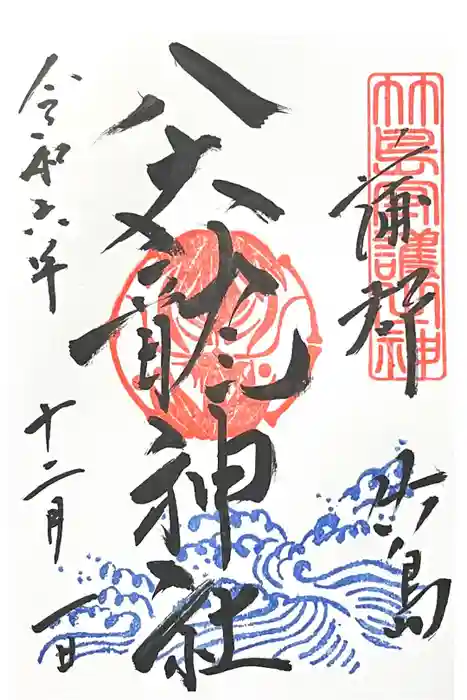 竹島守護神
蒲郡
竹島
八大龍神社
令和六年
十二月
一日